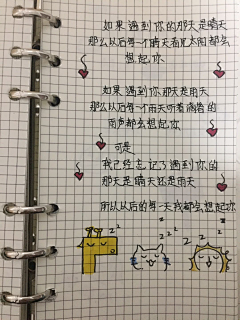 如果遇到你的那天是晴天
那么以后每一个晴天看见太阳都会
想起你
如果遇到你那天是雨天
那么以后每一个雨天听着滴答的
雨声都会想起你
可是
我已经忘记了遇到你的
那天是晴天还是雨天
所以从以后的每一天我都会想起你
z z
z z z
z z z